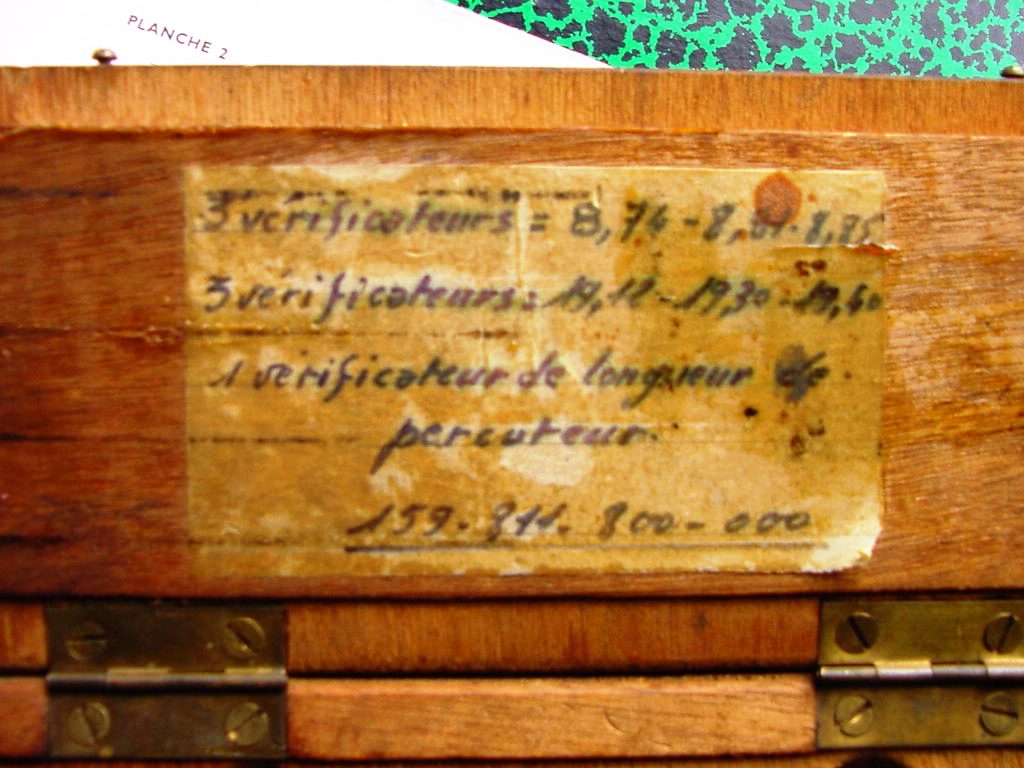 PLANCHE 2
3 vérificateurs = 8,74 - 8, - 8,85
3 vérificateurs = 19,12 - 19,30 - 19,40
1 vérificateur de longueur de
percuteur.
159. 811. 800 - 000